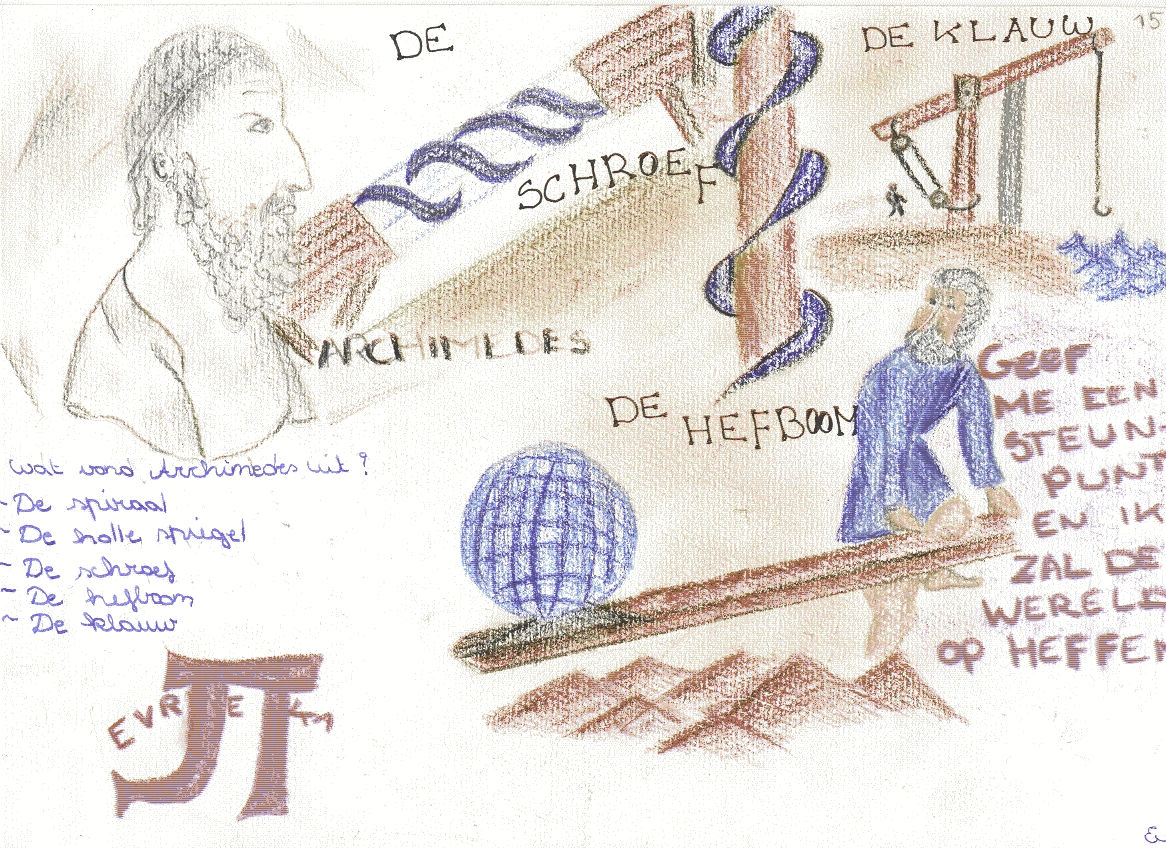 DE
SCHROEF
DE KLAUW
15
ARCHIMEDES
DE
HEFBOOM
GEEF
ME EEN
STEUN-
PUNT
EN IK
ZAL DE
WERELD
OP HEFFEN
wat vond Archimedes uit?
- De spiraal
~ De holle spiegel
~ De schroef
~ De hefboom
~ De klauw
π